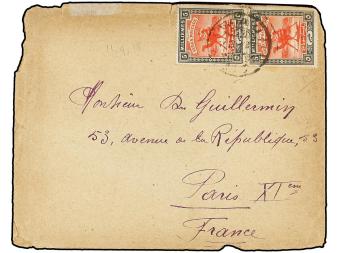 Monsieur Du Guillermin
53, avenue de la République, 53
Paris XIème
France